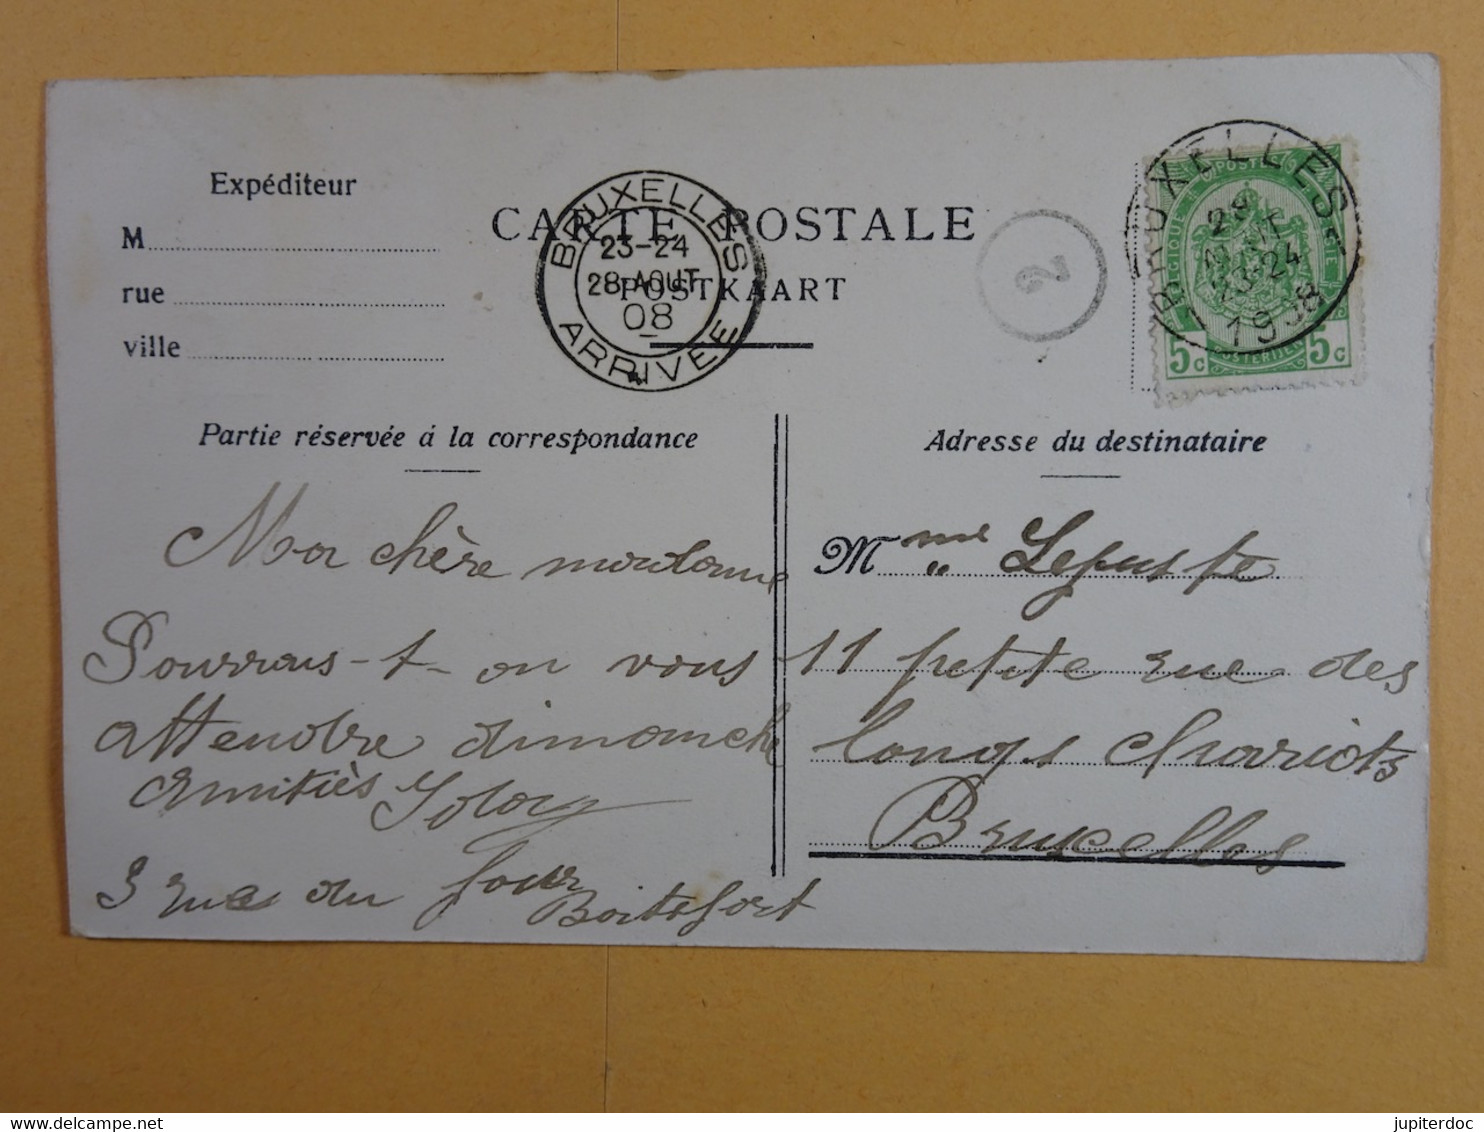 Expéditeur
M
rue
ville
BRUXELLES
23-24
28 AOUT
08
ARRIVEE
CARTE POSTALE
POSTKAART
2
BRUXELLES
23-24
1908
POSTE
BELGIQUE
5c 5c
Partie réservée á la correspondance
Adresse du destinataire
Ma chère
Pourrais-t-on vous
attendre dimanche
Amitiès
3 rue du four
Boitsfort
Mme
11 petite rue des
longs chariots
Bruxelles
jupiterdoc
www.delcampe.net